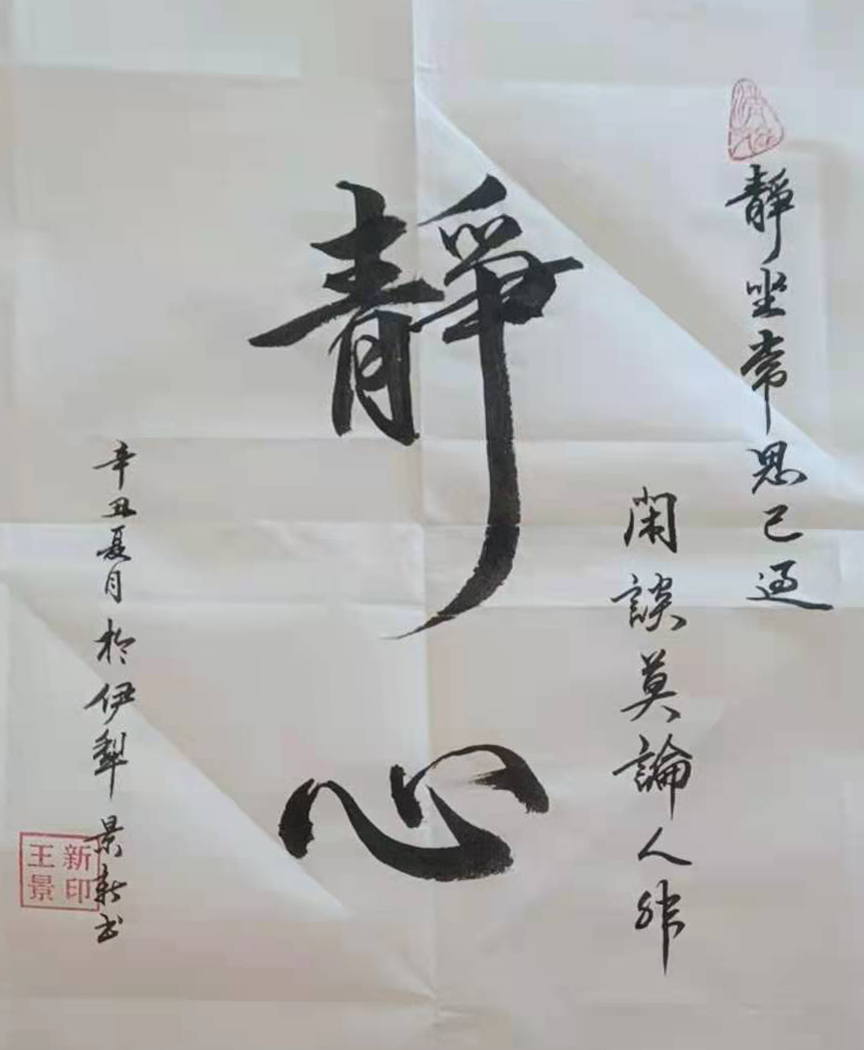 靜坐常思己過
閑談莫論人非
靜心
辛丑夏月於伊犁景新书
王景新印